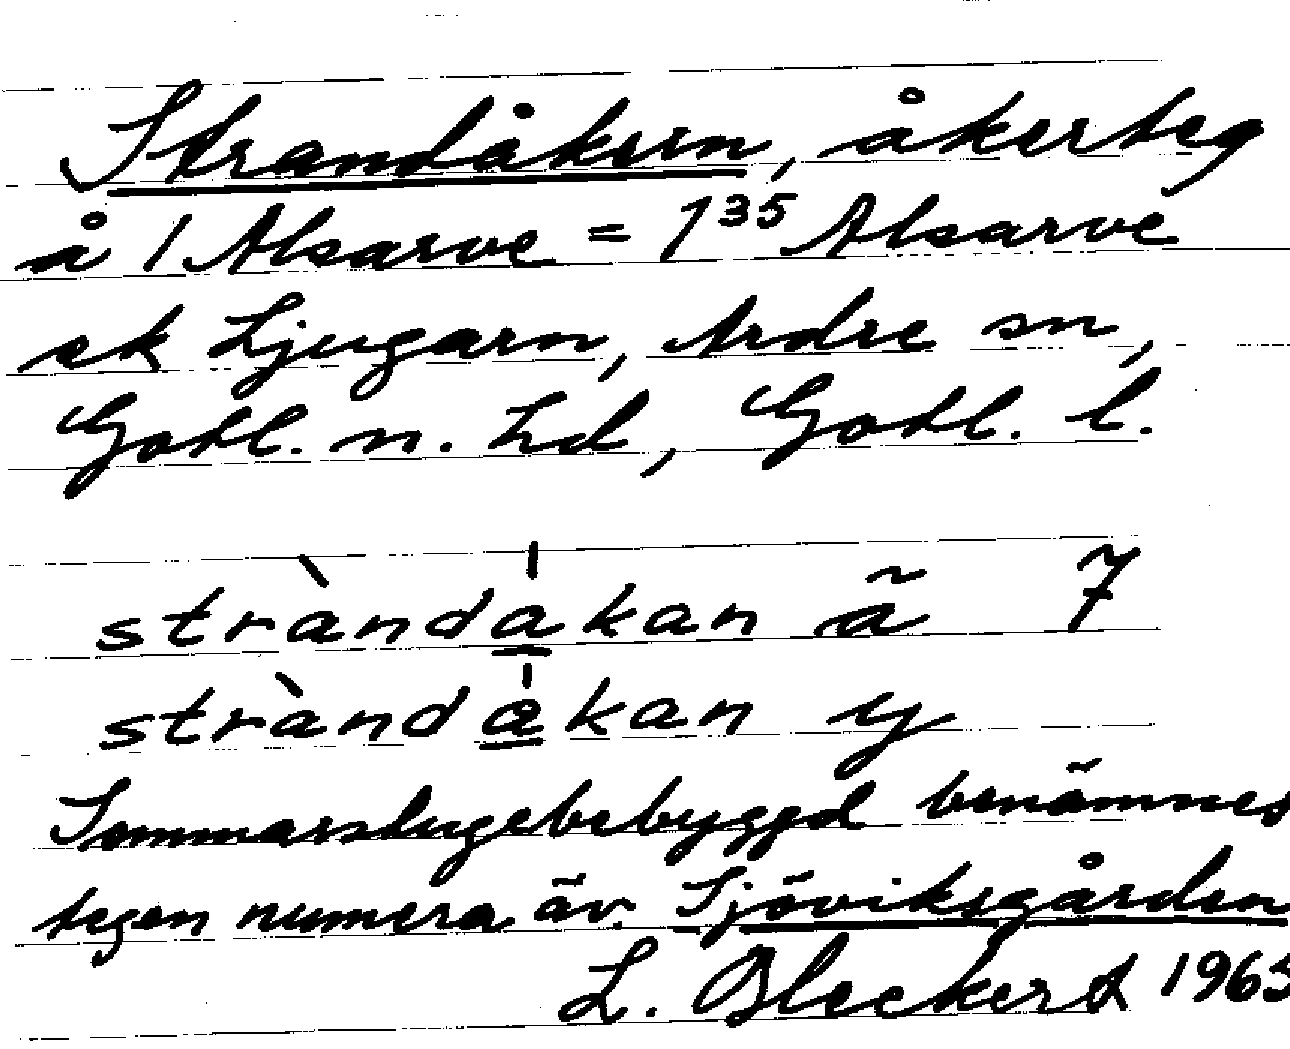 Strandåkern, åkerteg
å 1 Alsarve = 1³⁵ Alsarve
ek Ljugarn, Ardre sn,
Gotl. n. hd, Gotl. l.
stràndåkan ã 7
stràndåkan y
Sommarstugebebyggd benämnes
tegen numera äv. Sjöviksgården
L. Bleckert 1963